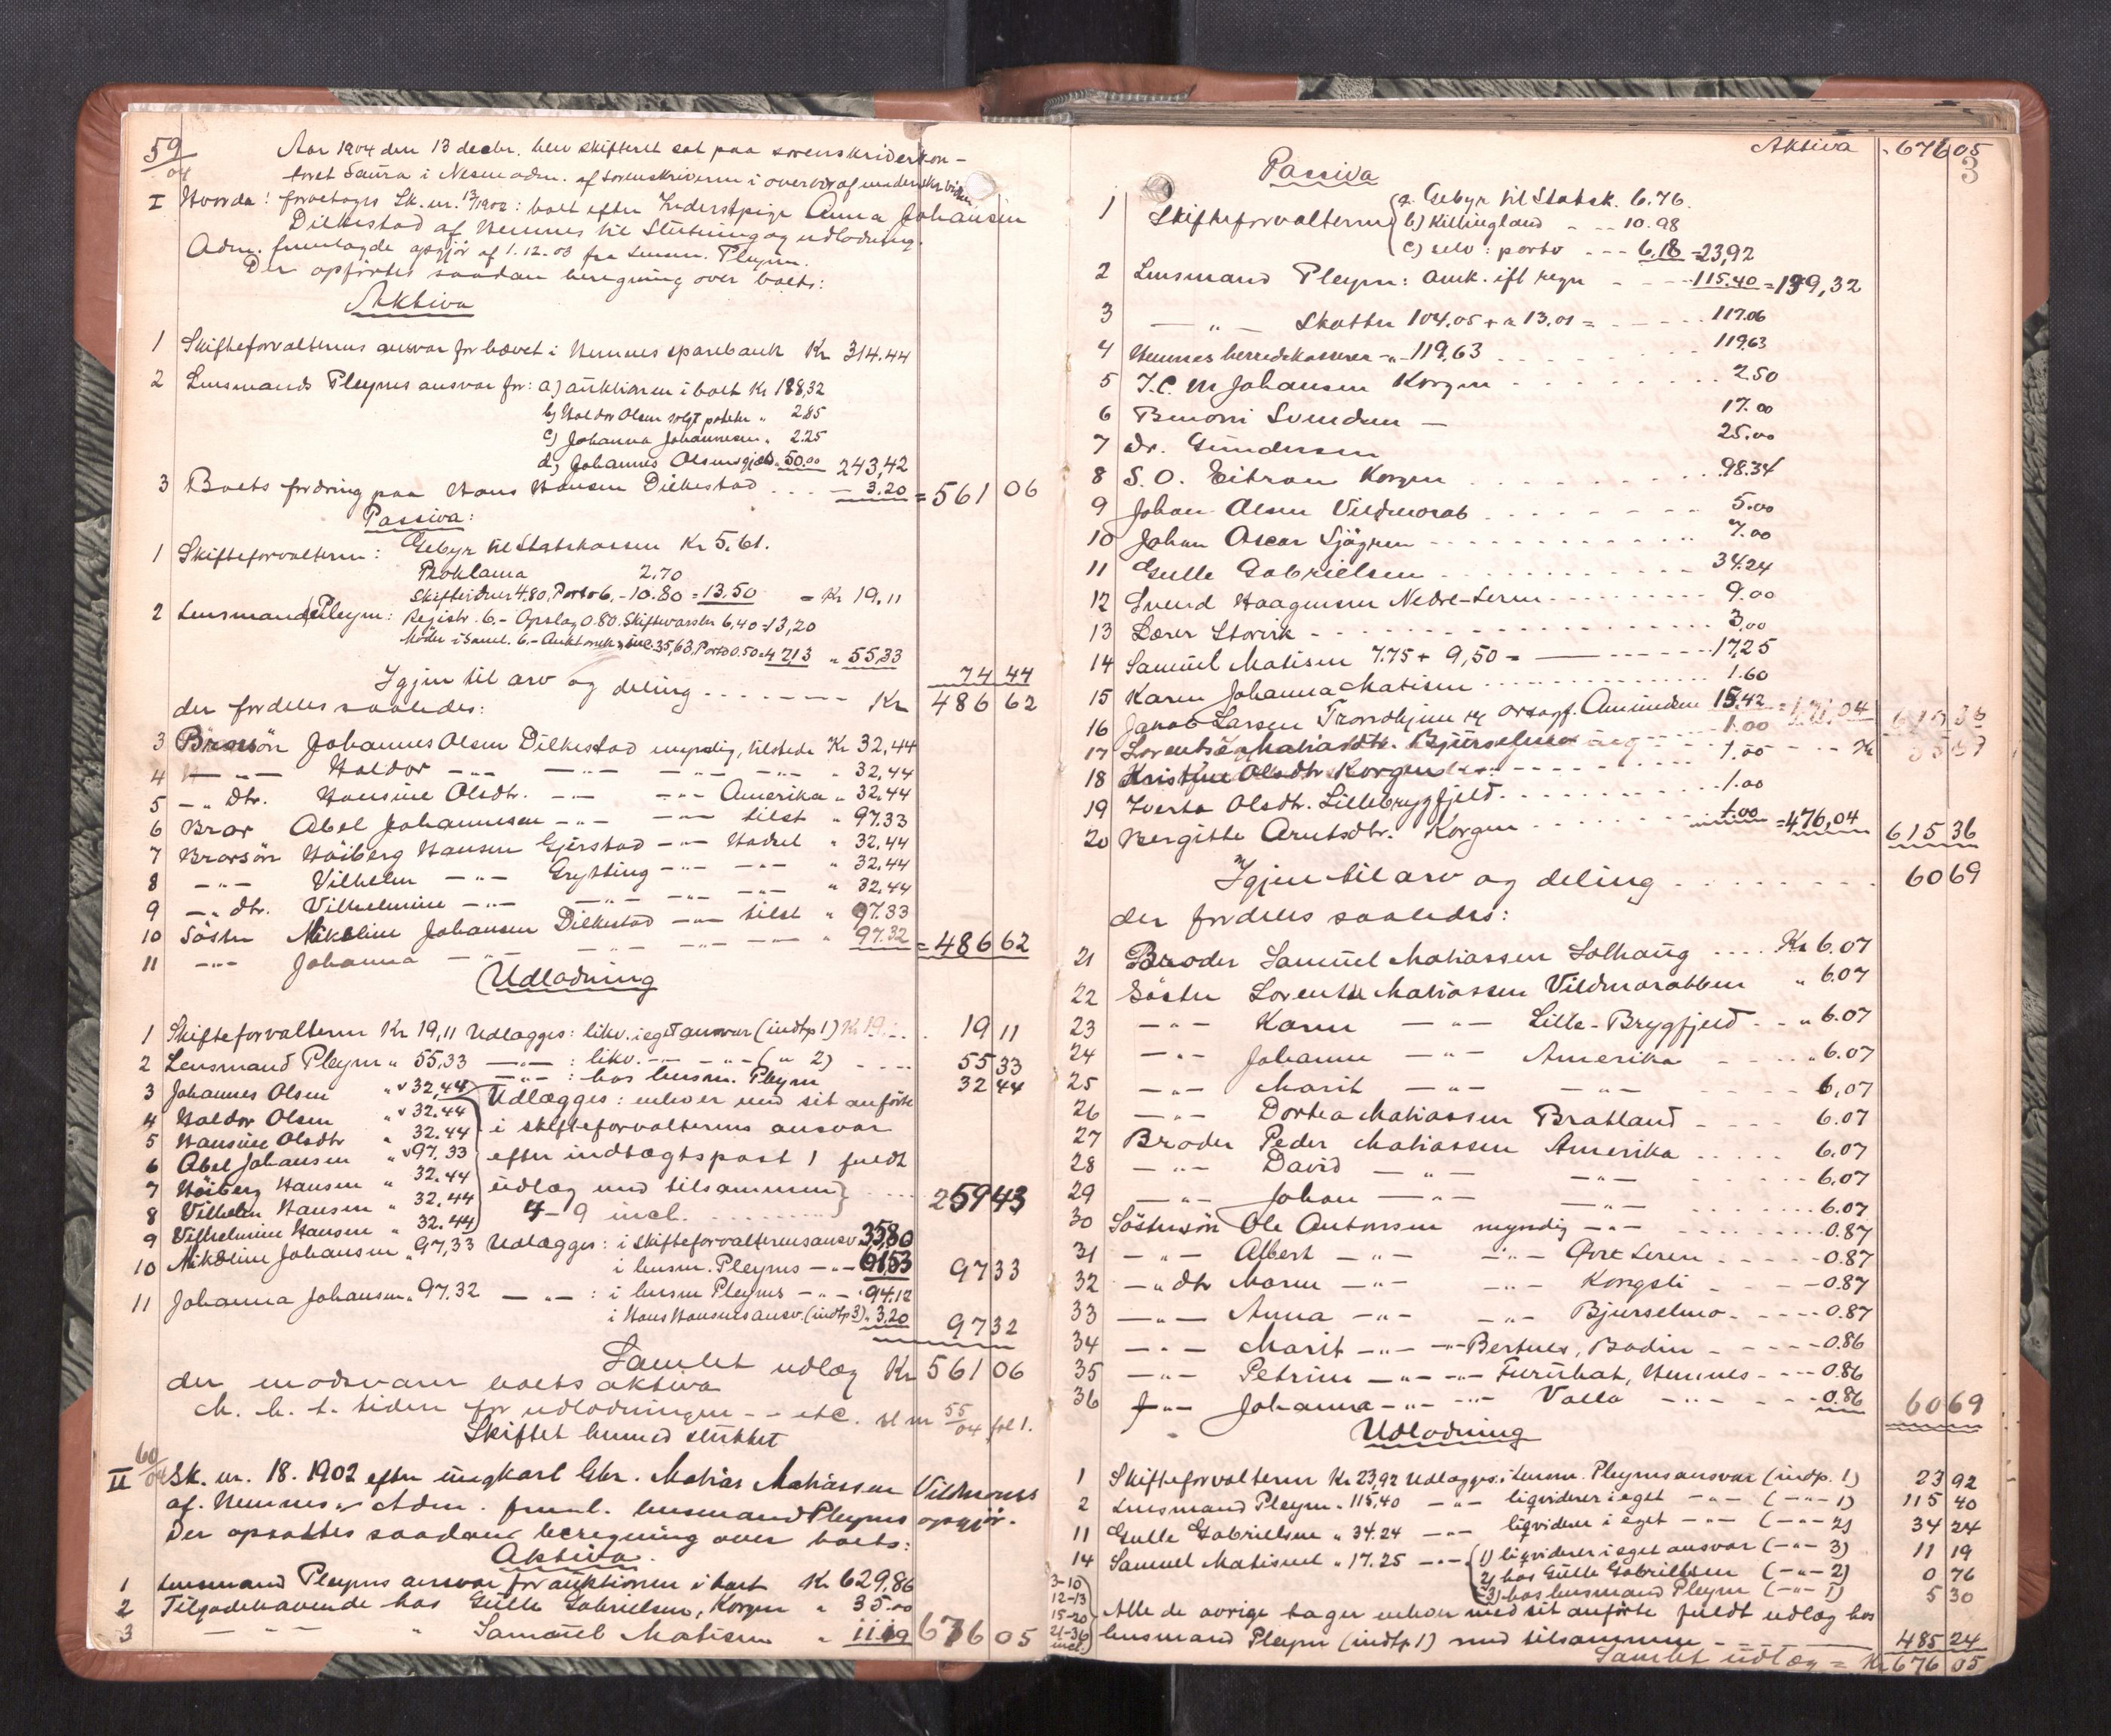 59/04
Aar 1904 den 13 decbr. blev skifteret sat paa sorenskriverkon-
toret Saura i Nesna adm. af sorenskriveren i overvær af underskr. vidner.
I Hvorda: foretoges Sk. nr. 13/1902: boet efter Inderstpige Anna Johansen
Dilkestad af Hemnes til Slutning og udlodning.
Adm. fremlagde opgjør af 1.12.03 fra Lensm. Pleym.
Der opførtes saadan beregning over boets:
Aktiva
1 Skifteforvalterens ansvar for hævet i Hemnes sparebank Kr 314.44
2 Lensmands Pleyms ansvar for: a) auktionen i boet Kr 188,32
b) Haldor Olsen solgt poteter " 2.85
c) Johanna Johannesen " 2.25
d) Johannes Olsens gjæld " 50.00 243,42
3 Boets fordring paa Hans Hansen Dilkestad ... - 3.20 = 561 06
Passiva:
1 Skifteforvalteren: Gebyr til Statskassen Kr 5.61.
Proklama 2.70
Skifteidner 4.80, Porto 6.- 10.80 = 13,50 = Kr 19,11
2 Lensmand Pleym: Registr. 6.- Opslag 0.80. Skiftevarsler 6,40 = 13,20
Møder i Saml. 6.- Auktomk. incl. 35,63, Porto 0.50 = 42,13 " 55,33
74 44
Igjen til arv og deling - - - - Kr 486 62
der fordeles saaledes:
3 Brorsøn Johannes Olsen Dilkestad myndig, tilstede Kr 32,44
4 - " - Haldor - " - - " - - " - - " - " 32,44
5 - " dtr. Hansine Olsdtr. - " - - " - Amerika " 32.44
6 Bror Abel Johannesen - " - - " - tilst " 97.33
7 Brorsøn Høiberg Hansen Gjerstad - " - Hadsel " 32,44
8 - " - Vilhelm - " - Grytting - " - - " - " 32,44
9 - " dtr. Vilhelmine - " - - " - - " - - " - " 32,44
10 Søster Nikoline Johansen Dilkestad - " - tilst " 97.33
11 - " - Johanna - " - - " - - " - - " - " 97.32 = 486 62
Udlodning
1 Skifteforvalteren Kr 19,11 Udlægges: likv. i eget ansvar (indtp 1) Kr 19 . . . 19 11
2 Lensmand Pleym " 55,33 - " - : likv. - " - - " - ( " 2) - - - 55 33
3 Johannes Olsen " 32,44 - " - : hos lensm. Pleym 32 44
4 Haldor Olsen " 32.44 Udlægges: enhver med sit anførte
5 Hansine Olsdtr " 32.44 i skifteforvalterens ansvar
6 Abel Johansen " 97,33 efter indtægtspost 1 fuldt
7 Høiberg Hansen " 32.44 udlæg med tilsammen
8 Vilhelm Hansen " 32,44 4 - 9 incl. . . . . . 259 43
9 Vilhelmine Hansen " 32.44
10 Nikoline Johansen " 97,33 Udlægges: i Skifteforvalterens ansv. 35.80
i lensm. Pleyms - " - 61,53 97 33
11 Johanna Johansen " 97.32 - " - : i lensm Pleyms - " - 94.12
i Hans Hansens ansv. (indtp 3) " 3.20 97 32
Samlet udlæg Kr 561 06
der modsvarer boets aktiva
M. h. t. tiden for udlodningen - - etc. sl nr 55/04 fol 1.
Skiftet hermed sluttet
60/04
II Sk. nr. 18. 1902 efter ungkarl Chr. Matias Matiassen Vildmoras
af Hemnes. Adm. freml. lensmand Pleyms opgjør.
Der opsattes saadan beregning over boets:
Aktiva.
1 Lensmand Pleyms ansvar for auktionen i boet Kr 629,86
2 Tilgodehavende hos Gulle Gabrielsen, Korgen " 35.00
3 - " - " Samuel Matisen " 11.19 676 05
Aktiva . 676 05
3
Passiva
1 Skifteforvalteren a. Gebyr til Statsk. 6.76.
b) Killingland - - - 10.98
c) selv: porto - - - 6.18 = 23,92
2 Lensmand Pleym: Omk. ifl regn - - - 115.40 = 139,32
3 - " - Skatter 104.05 + " 13.01 = - - - - - 117.06
4 Hemnes herredskasserer - " - 119,63 . . . . . 119.63
5 J. C. M Johansen Korgen . . . . . . . 2.50
6 Benoni Svendsen - 17.00
7 Dr. Gundersen 25.00
8 S. O. Eitran Korgen . . . . . . . . 98.34
9 Johan Olsen Vildmorab . . . . . . . 5.00
10 Johan Oscar Sjøgren . . . . . . . . 7.00
11 Gulle Gabrielsen . . . . . . . . 34.24
12 Svend Haagensen Nedre-Leren . . . . . . 9.00
13 Lærer Storvik . . . . . . . . . 3,00
14 Samuel Matisen 7.75 + 9,50 = - - - - 17,25
15 Karen Johanna Matisen . . . . . . . . 1.60
16 Jakob Larsen Trondhjem Amundsen 15,42
17 Lorents Bjurselmo 1.00
18 Kristine Olsdtr Korgen - - - - - 1.00
19 Iverta Olsdtr. Lillebrygfjeld . . . . . . . 1.00
20 Bergitte Arntsdtr. Korgen . . . . . . 1.00 = 476,04 615 36
Igjen til arv og deling . . . . . . . 60 69
der fordeles saaledes:
21 Broder Samuel Matiassen Solhaug . . . . Kr 6.07
22 Søster Lorentse Matiassen Vildmorabben " 6.07
23 - " - Karen - " - Lille-Brygfjeld - - " 6.07
24 - " - Johanne - " - Amerika - - - " 6.07
25 - " - Marit - " - - " - - - - 6,07
26 - " - Dortea Matiassen Bratland - - - - 6.07
27 Broder Peder Matiassen Amerika . . . . . 6.07
28 - " - David - " - - " - . . . . . 6,07
29 - " - Johan - " - - " - . . . . . 6.07
30 Søstersøn Ole Antonsen myndig - " - . . . . . 0.87
31 - " - Albert - " - - " - Øvre Leren . . . . 0.87
32 - " dtr Maren - " - - " - Kongsli - - - 0.87
33 - " - Anna - " - - " - Bjurselmo - - - - 0.87
34 - " - Marit - " - - " - Bertnes, Bodin - - - - 0.86
35 - " - Petrine - " - - " - Furuhat, Hemnes - - - 0.86
36 - " - Johanna - " - - " - Valla - " - - - 0.86 60 69
Udlodning
1 Skifteforvalteren Kr 23,92 Udlægges: i lensm. Pleyms ansvar (indtp. 1) 23 92
2 Lensmand Pleym " 115,40 - " - ligviderer i eget - " - ( - " - 1) 115 40
11 Gulle Gabrielsen " 34.24 - " - ligviderer i eget - " - ( - " - 2) 34 24
14 Samuel Matisen " 17.25 - " - 1) ligviderer i eget ansvar ( - " - 3) 11 19
2) hos Gulle Gabrielsen ( - " - 2) 0 76
3) hos lensmand Pleym ( - " - 1) 5 30
3-10
12-13
15-20
21-36
incl.
Alle de øvrige tager enhver med sit anførte fuldt udlæg hos
lensmand Pleym (indtp 1) med tilsammen - - - 485 24
Samlet udlæg = Kr 676 05